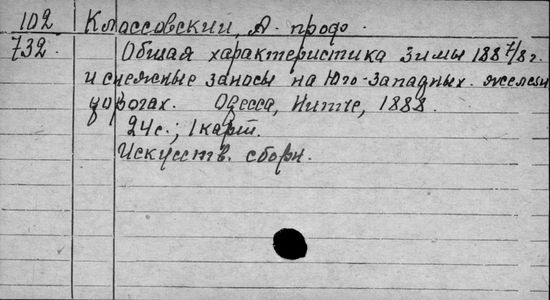 102 Классовский, А. проф.
732. Общая характеристика зимы 188 7/8 г.
и снежные заносы на Юго-Западных. железн
дорогах. Одесса, Нитче, 1888.
24 с.; 1 карт.
Искусств. сборн.